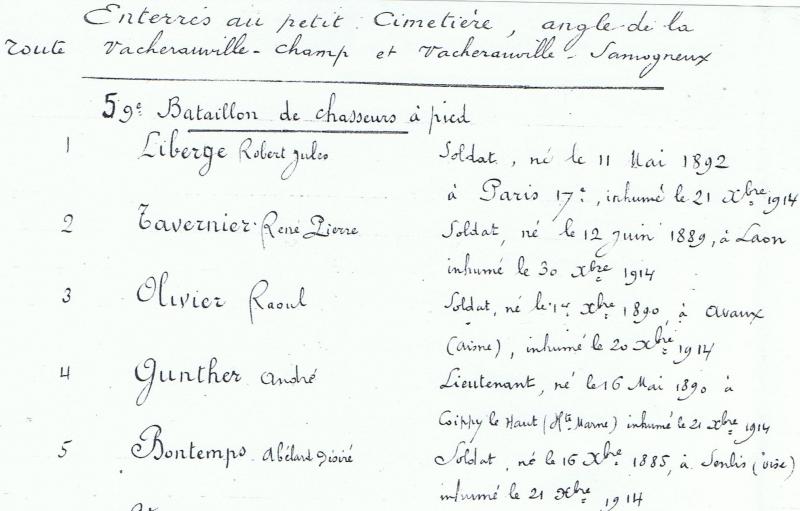 Enterrés au petit Cimetière, angle de la
route Vacherauville - Champ et Vacherauville - Samogneux
59e Bataillon de chasseurs à pied
1 Liberge Robert Jules Soldat, né le 11 Mai 1892
à Paris 17e, inhumé le 21 Xbre 1914
2 Tavernier René Pierre Soldat, né le 12 Juin 1889, à Laon
inhumé le 30 Xbre 1914
3 Olivier Raoul Soldat, né le 1er Xbre 1890, à Avaux
(Aisne), inhumé le 20 Xbre 1914
4 Gunther André Lieutenant, né le 16 Mai 1890 à
Coippy le Haut (Hte Marne) inhumé le 21 Xbre 1914
5 Bontemps Abélard Soldat, né le 16 Xbre 1885, à Senlis (Oise)
inhumé le 21 Xbre 1914